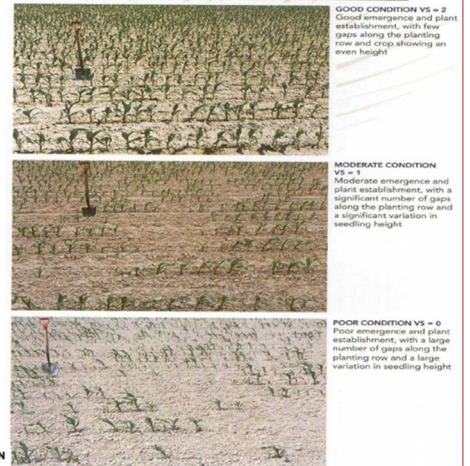 GOOD CONDITION VS = 2
Good emergence and plant
establishment, with few
gaps along the planting
row and crop showing an
even height
MODERATE CONDITION
VS = 1
Moderate emergence and
plant establishment, with a
significant number of gaps
along the planting row and
a significant variation in
seedling height
POOR CONDITION VS = 0
Poor emergence and plant
establishment, with a large
number of gaps along the
planting row and a large
variation in seedling height
N